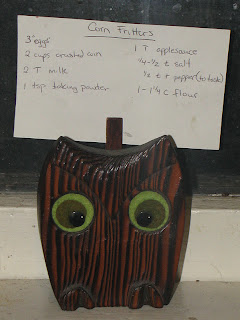 Corn Fritters
3 eggs
2 cups creamed corn
2 T milk
1 tsp baking powder
1 T applesauce
1/4-1/2 t salt
1/2 t pepper (to taste)
1-1 1/4 c flour